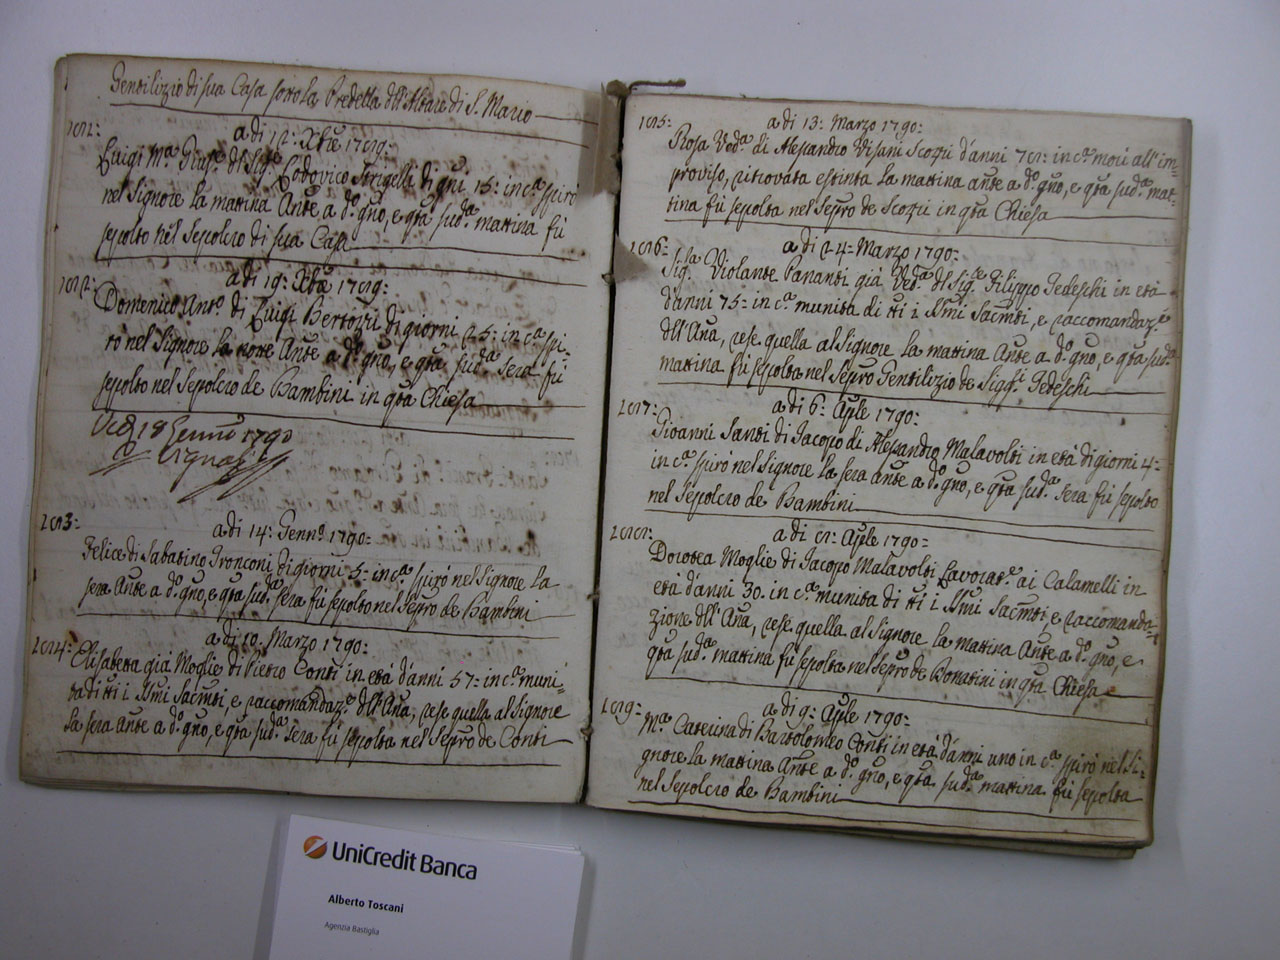 Gentilizio di sua Casa sotto la Predella dell'Altare di S. Mario
a di 12: Xbre 1789:
Luigi M.a Gius.e del Sig.e Lodovico Strigelli di gni 15: in c.a spirò
nel Signore la mattina Ante a d.o gno, e qta sud.a mattina fù
sepolto nel Sepolcro di sua Casa
a di 19: Xbre 1789:
Domenico Ant.o di Luigi Bertozzi di giorni 25: in c.a spi-
rò nel Signore la notte Ante a d.o gno, e qta sud.a sera fù
sepolto nel Sepolcro de Bambini in qta Chiesa
18 Genno 1790
a di 14: Genn.o 1790:
Felice di Sabatino Tronconi di giorni 5: in c.a spirò nel Signore la
sera Ante a d.o gno, e qta sud.a sera fù sepolto nel Sepro de Bambini
a di 10: Marzo 1790:
Elisabetta già Moglie di Pietro Conti in età d'anni 57: in c.a muni-
ta di tti i SSmi Sacmti, e raccomandaz.e dell'Ana, rese quella al Signore
la sera Ante a d.o gno, e qta sud.a sera fù sepolta nel Sepro de Conti
a di 13: Marzo 1790:
Rosa Ved.a di Alessandro Visani Scozzi d'anni 78: in c.a morì all'im-
proviso, ritrovata estinta la mattina ante a d.o gno, e qta sud.a mat-
tina fù sepolta nel Sepro de Scozzi in qta Chiesa
a di 24: Marzo 1790:
Sig.la Violante Pananti già Ved.a del Sig.e Filippo Tedeschi in età
d'anni 75: in c.a munita di tti i SSmi Sacmti, e raccomandaz.e
dell'Ana, rese quella al Signore la mattina Ante a d.o gno, e qta sud.a
mattina fù sepolta nel Sepro Gentilizio de Sigg.i Tedeschi
a di 6: Aple 1790:
Gioanni Santi di Jacopo di Alessandro Malavolti in età di giorni 4:
in c.a spirò nel Signore la sera ante a d.o gno, e qta sud.a sera fù sepolto
nel Sepolcro de Bambini
a di 8: Aple 1790:
Dorotea Moglie di Jacopo Malavolti Lavorat.e ai Calamelli in
età d'anni 30. in c.a munita di tti i SSmi Sacmti, e raccomanda-
zione dell'Ana, rese quella al Signore la mattina Ante a d.o gno, e
qta sud.a mattina fù sepolta nel Sepro de Bonatini in qta Chiesa
a di 9: Aple 1790:
M.a Caterina di Bartolomeo Conti in età d'anni uno in c.a spirò nel Si-
gnore la mattina Ante a d.o gno, e qta sud.a mattina fù sepolta
nel Sepolcro de Bambini
UniCredit Banca
Alberto Toscani
Agenzia Bastiglia